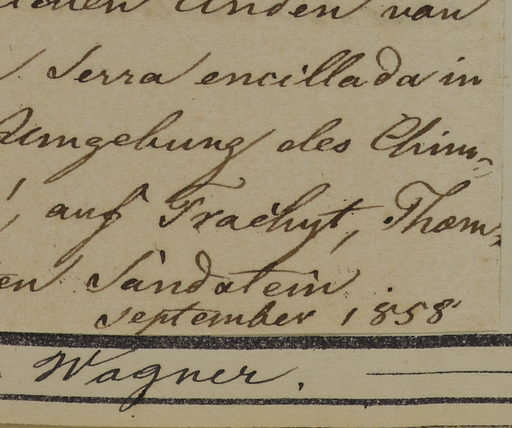 Anden von
Serra encillada in
Umgebung des Chim=
auf Trachyt, Thom,
en Sandstein
September 1858
Wagner.